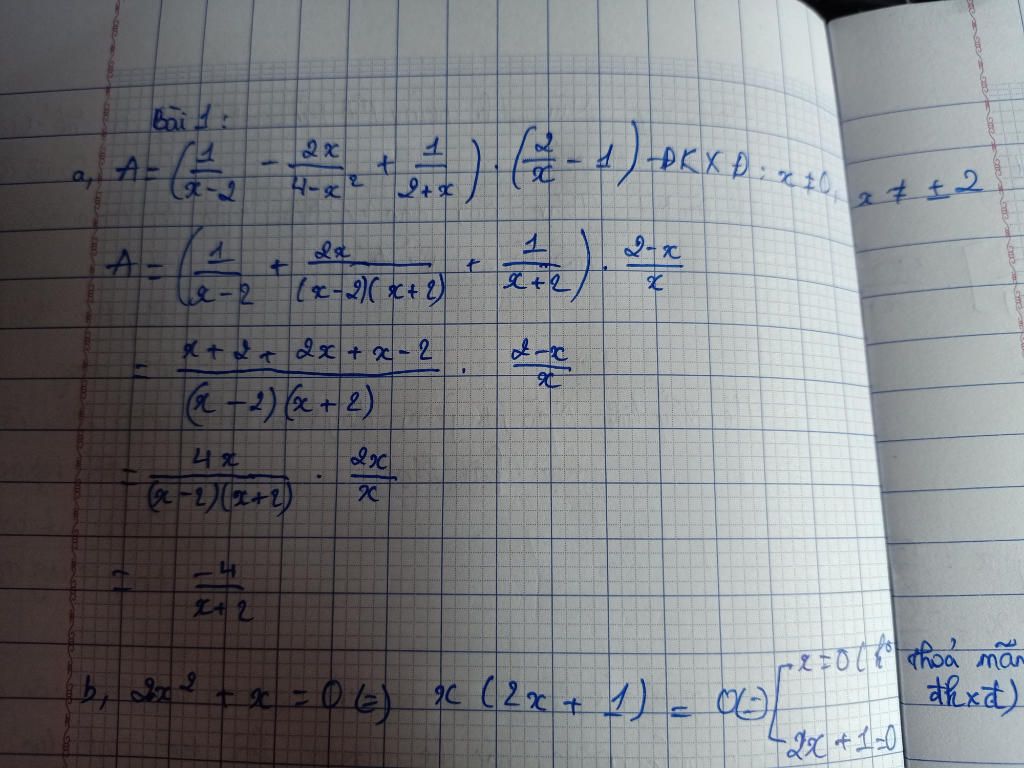 Bài 1 :
a, A = (1/(x-2) - 2x/(4-x²) + 1/(2+x)) . (2/x - 1) ĐKXĐ : x ≠ 0, x ≠ ± 2
A = (1/(x-2) + 2x/((x-2)(x+2)) + 1/(x+2)) . (2-x)/x
= (x+2+2x+x-2)/((x-2)(x+2)) . (2-x)/x
= 4x/((x-2)(x+2)) . 2x/x
= -4/(x+2)
b, 2x² + x = 0 (=) x (2x + 1) = 0 (=) [ x = 0 (ko thoả mãn
đkxđ)
2x + 1 = 0